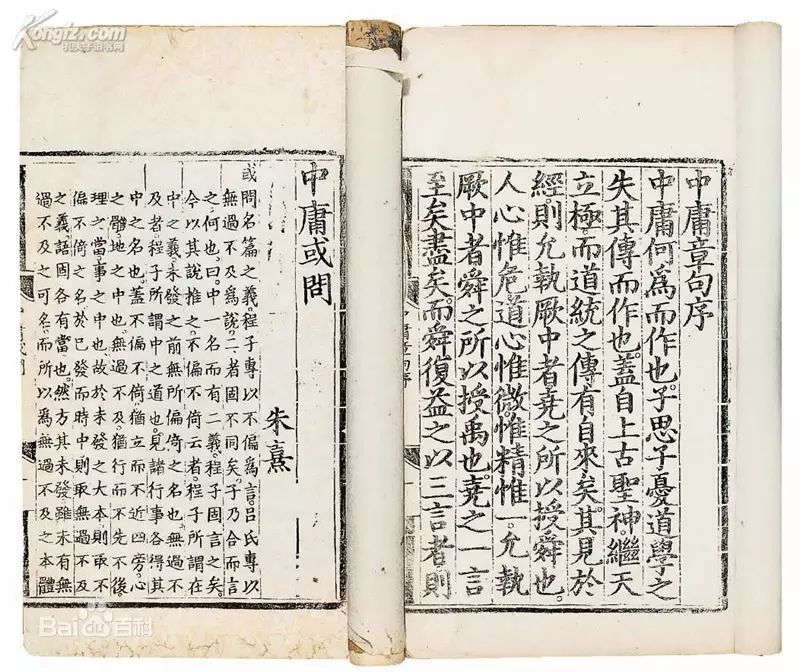 中庸章句序
中庸何爲而作也。子思子憂道學之
失其傳而作也。蓋自上古聖神。繼天
立極。而道統之傳有自來矣。其見於
經。則允執厥中者。堯之所以授舜也。
人心惟危。道心惟微。惟精惟一。允執
厥中者。舜之所以授禹也。堯之一言
至矣盡矣。而舜復益之以三言者。則
中庸或問
朱熹
或問名篇之義。程子專以不偏爲言。呂氏專以
無過不及爲說。二者固不同矣。子乃合而言
之何也。曰。中一名而有二義。程子固言之矣。
今以其說推之。不偏不倚云者。程子所謂在
中之義。未發之前無所偏倚之名也。無過不
及者。程子所謂中之道也。見諸行事各得其
中之名也。蓋不偏不倚。猶立而不近四旁。心
之體。地之中也。無過不及。猶行而不先不後
理之當。事之中也。故於未發之大本。則取不
偏不倚之名。於已發而時中。則取無過不及
之義。語固各有當也。然方其未發。雖未有無
過不及之可名。而所以爲無過不及之本體
Kongfz.com
孔夫子旧书网
Bai百科